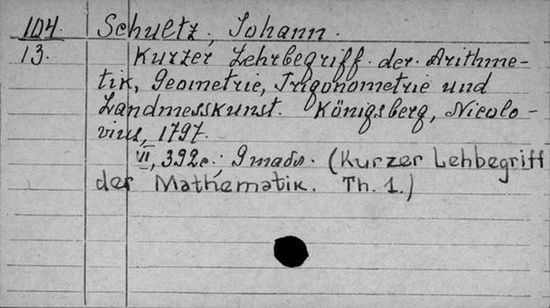 104. Schultz, Johann.
13. Kurzer Lehrbegriff der Arithme-
tik, Geometrie, Trigonometrie und
Landmesskunst. Königsberg, Nicolo-
vius, 1797.
VI, 392 c.; 9 (Kurzer Lehbegriff
der Mathematik. Th. 1.)